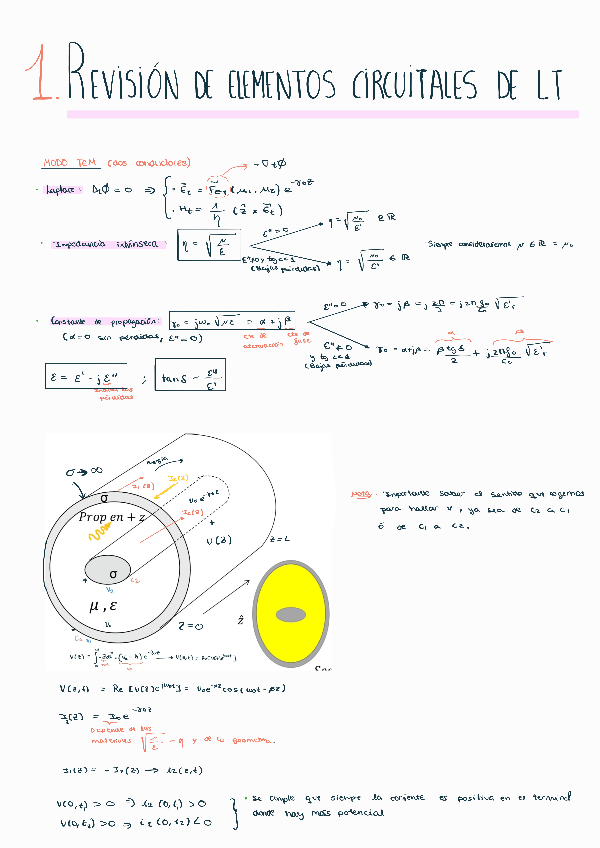 1. REVISIÓN DE ELEMENTOS CIRCUITALES DE LT
MODO TEM (dos conductores)
-∇tφ
• Laplace: Δtφ = 0 ⇒ { · Ēt = F̄et (μ1, μ2) e^-γ0z
· Ht = 1/η (ẑ × Ēt)
• Impedancia intrínseca: η = √(μ/ε)
ε''=0 η = √(μ0/ε') ∈ ℝ
ε''≠0 y tg<<1 (Bajas pérdidas) η = √(μ0/ε') ∈ ℝ
Siempre consideraremos μ ∈ ℝ = μ0
• Constante de propagación: γ0 = jω0 √με = α + jβ
(α=0 sin pérdidas, ε''=0)
cte de atenuación
cte de fase
ε''=0 γ0 = jβ = j 2π/λ = j2πf0/c0 √ε'r
ε''≠0 y tg<<1 (Bajas pérdidas) γ0 = α+jβ = β tgδ/2 + j2πf0/c0 √ε'r
ε = ε' - jε'' ; tanδ = ε''/ε'
Indica las pérdidas
σ → ∞
I1(z)
I2(z)
V0 e^-γ0z
σ
Prop en + z
I2(z)
+
V(z)
z=L
σ
C2
μ , ε
z=0
ẑ
Nota: Importante saber el sentido que cogemos
para hallar V, ya sea de C2 a C1
ó de C1 a C2.
V(z,t) = Re [V(z)e^jω0t] = V0 e^-αz cos(ω0t - βz)
I2(z) = I0 e^-γ0z
Depende de los
materiales √(μ/ε) = η y de la geometría.
I1(z) = - I2(z) → i2(z,t)
V(0,t1) > 0 ⇒ i2 (0,t1) > 0
V(0,t2) > 0 ⇒ i2 (0,t2) < 0
• Se cumple que siempre la corriente es positiva en el terminal
donde hay más potencial